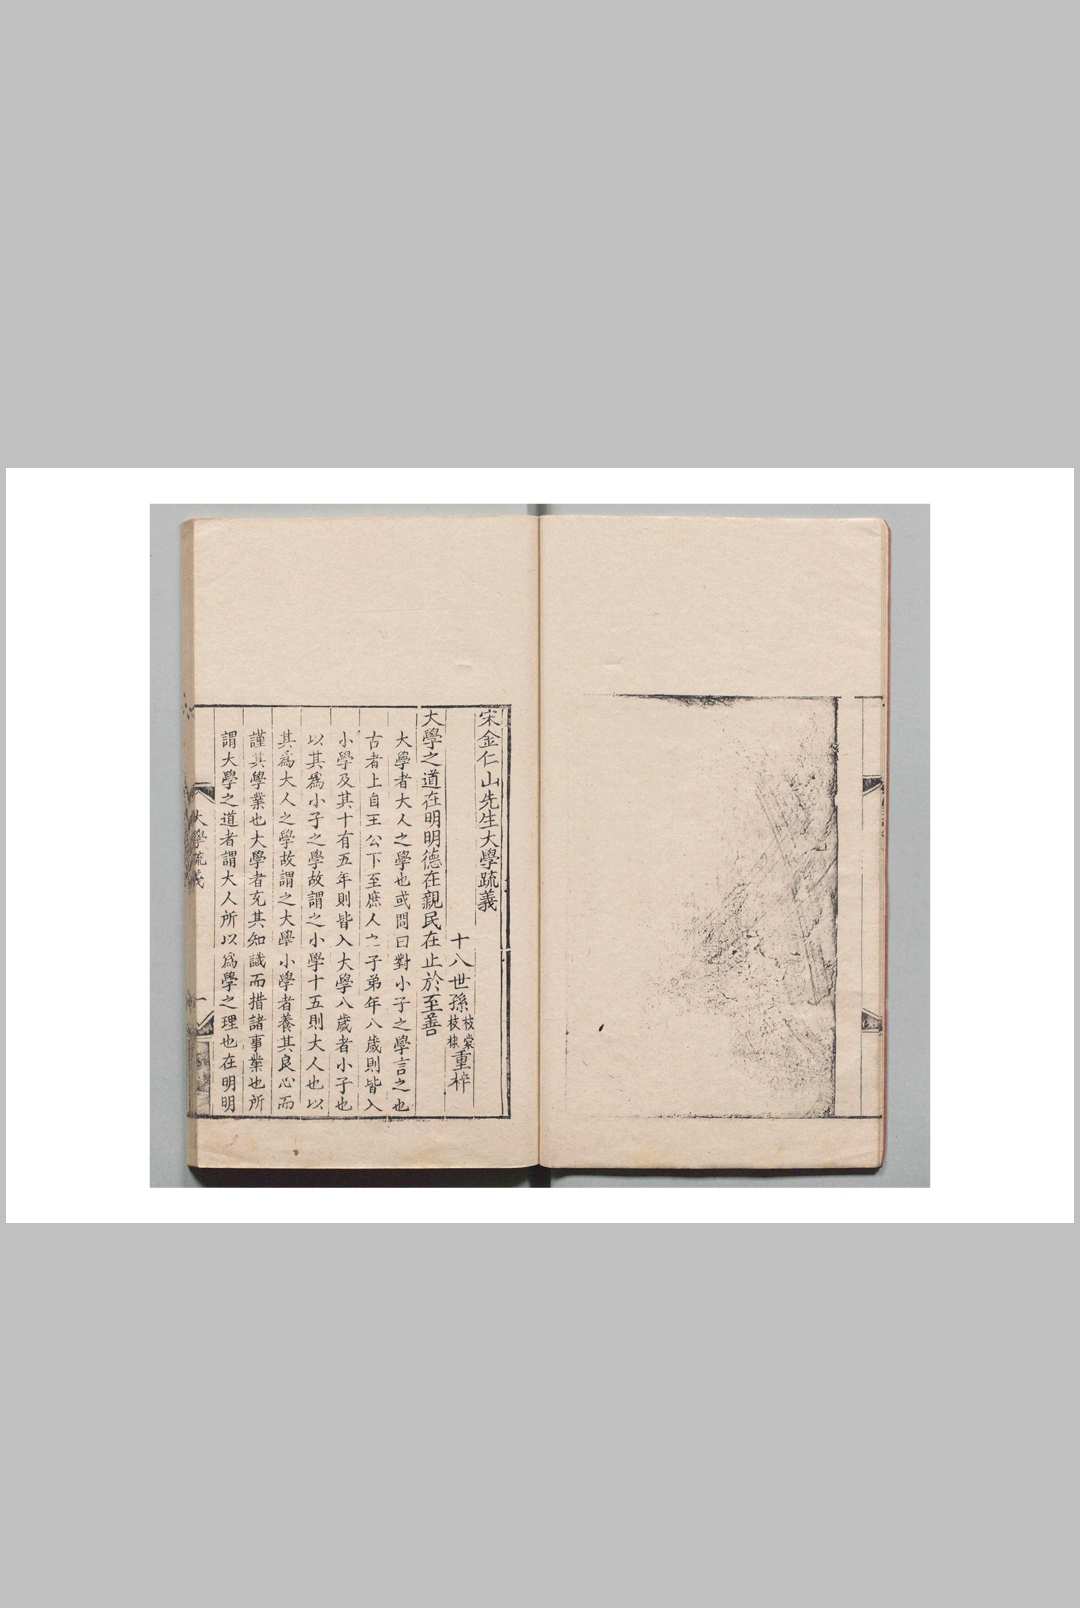 宋金仁山先生大學疏義
十八世孫枝棠枝棣重梓
大學之道在明明德在親民在止於至善
大學者大人之學也或問曰對小子之學言之也
古者上自王公下至庶人之子弟年八歲則皆入
小學及其十有五年則皆入大學八歲者小子也
以其爲小子之學故謂之小學十五則大人也以
其爲大人之學故謂之大學小學者養其良心而
謹其學業也大學者充其知識而措諸事業也所
謂大學之道者謂大人所以爲學之理也在明明
大學疏義
一